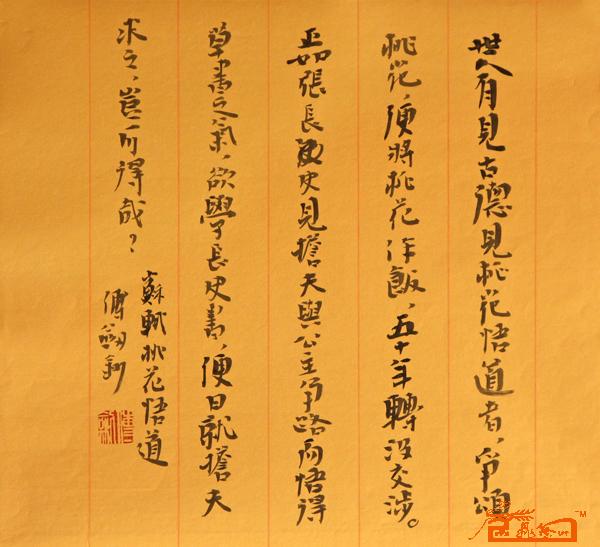 世人有見古德見桃花悟道者，爭頌
桃花，便將桃花作飯，五十年轉沒交涉。
正如張長史見擔夫與公主爭路而悟得
草書之氣，欲學長史書，便日就擔夫
求之，豈可得哉？
蘇軾桃花悟道
傅劍釗